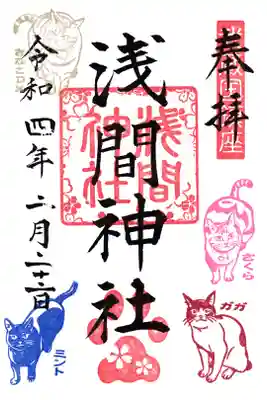 奉拝
浅間神社
浅間
神社
令和四年二月二十二日
さくら
ガガ
ミント